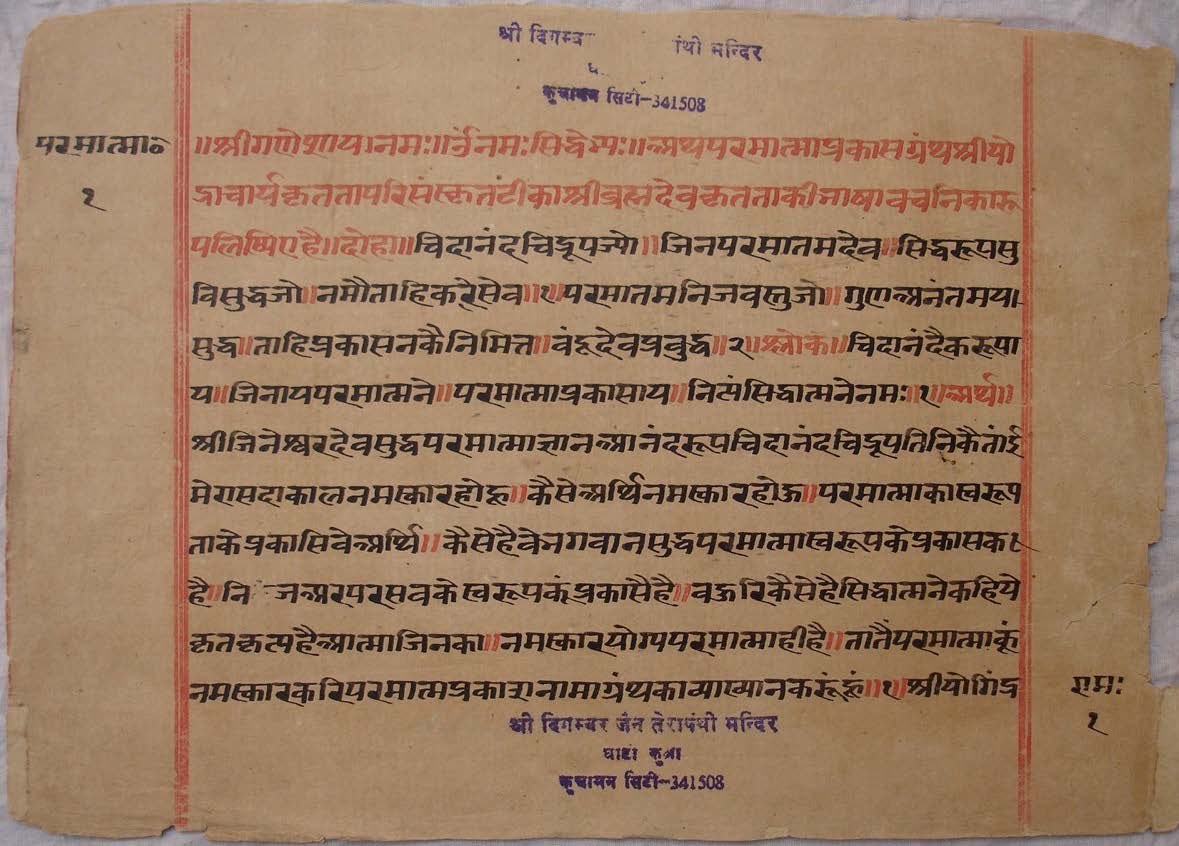 श्री दिगम्ब पंथी मन्दिर
कुचामन सिटी-341508
परमात्मा०
१
॥श्रीगणेशायनमः॥उँनमःसिद्धेभ्यः॥अथपरमात्माप्रकासग्रंथश्रीयो
द्राचार्यकृततापरिसंस्कृतटीकाश्रीब्रह्मदेवकृतताकीभाषावचनिकारू
पलिषिएहै॥दोहा॥चिदानंदचिद्रूपज्यो॥जिनपरमातमदेव॥सिद्धरूपसु
विसुद्धजो॥नमौताहिकरिसेव॥१॥परमातमनिजवस्तुजो॥गुणअनंतमया
सुद्ध॥ताहिप्रकासनकैनिमित्त॥वंदूदेवप्रबुद्ध॥२॥श्लोक॥चिदानंदैकरूपा
य॥जिनायपरमात्मने॥परमात्माप्रकासाय॥नित्यंसिद्धात्मनेनमः॥१॥अर्थ॥
श्रीजिनेश्वरदेवसुद्धपरमात्माज्ञानआनंदरूपचिदानंदचिद्रूपतिनिकैतांई
मेरासदाकालनमस्कारहोहू॥कैसेअर्थिनमस्कारहोऊ॥परमात्माकास्वरूप
ताकेप्रकासिवेअर्थि॥कैसेहैवेभगवानसुद्धपरमात्मास्वरूपकेप्रकासक
है॥नि जअरपरसबकेस्वरूपकूंप्रकासैहै॥बहुरिकैसेहैसिद्धात्मनेकहिये
कृतकृत्यहैआत्माजिनका॥नमस्कारयोग्यपरमात्माहीहै॥तातैंपरमात्माकूं
नमस्कारकरिपरमात्मप्रकाशनामाग्रंथकाव्याख्यानकरूंहूं॥१॥श्रीयोगिंद्र
रामः
१
श्री दिगम्बर जैन तेरापंथी मन्दिर
कुचामन सिटी-341508